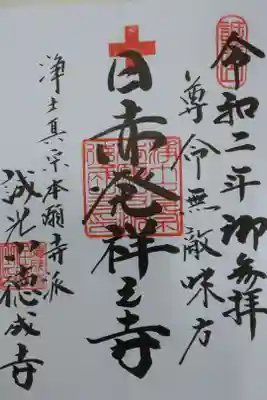 令和二年御参拝
尊命無敵味方
日赤発祥之寺
浄土真宗本願寺派
誠光山徳成寺